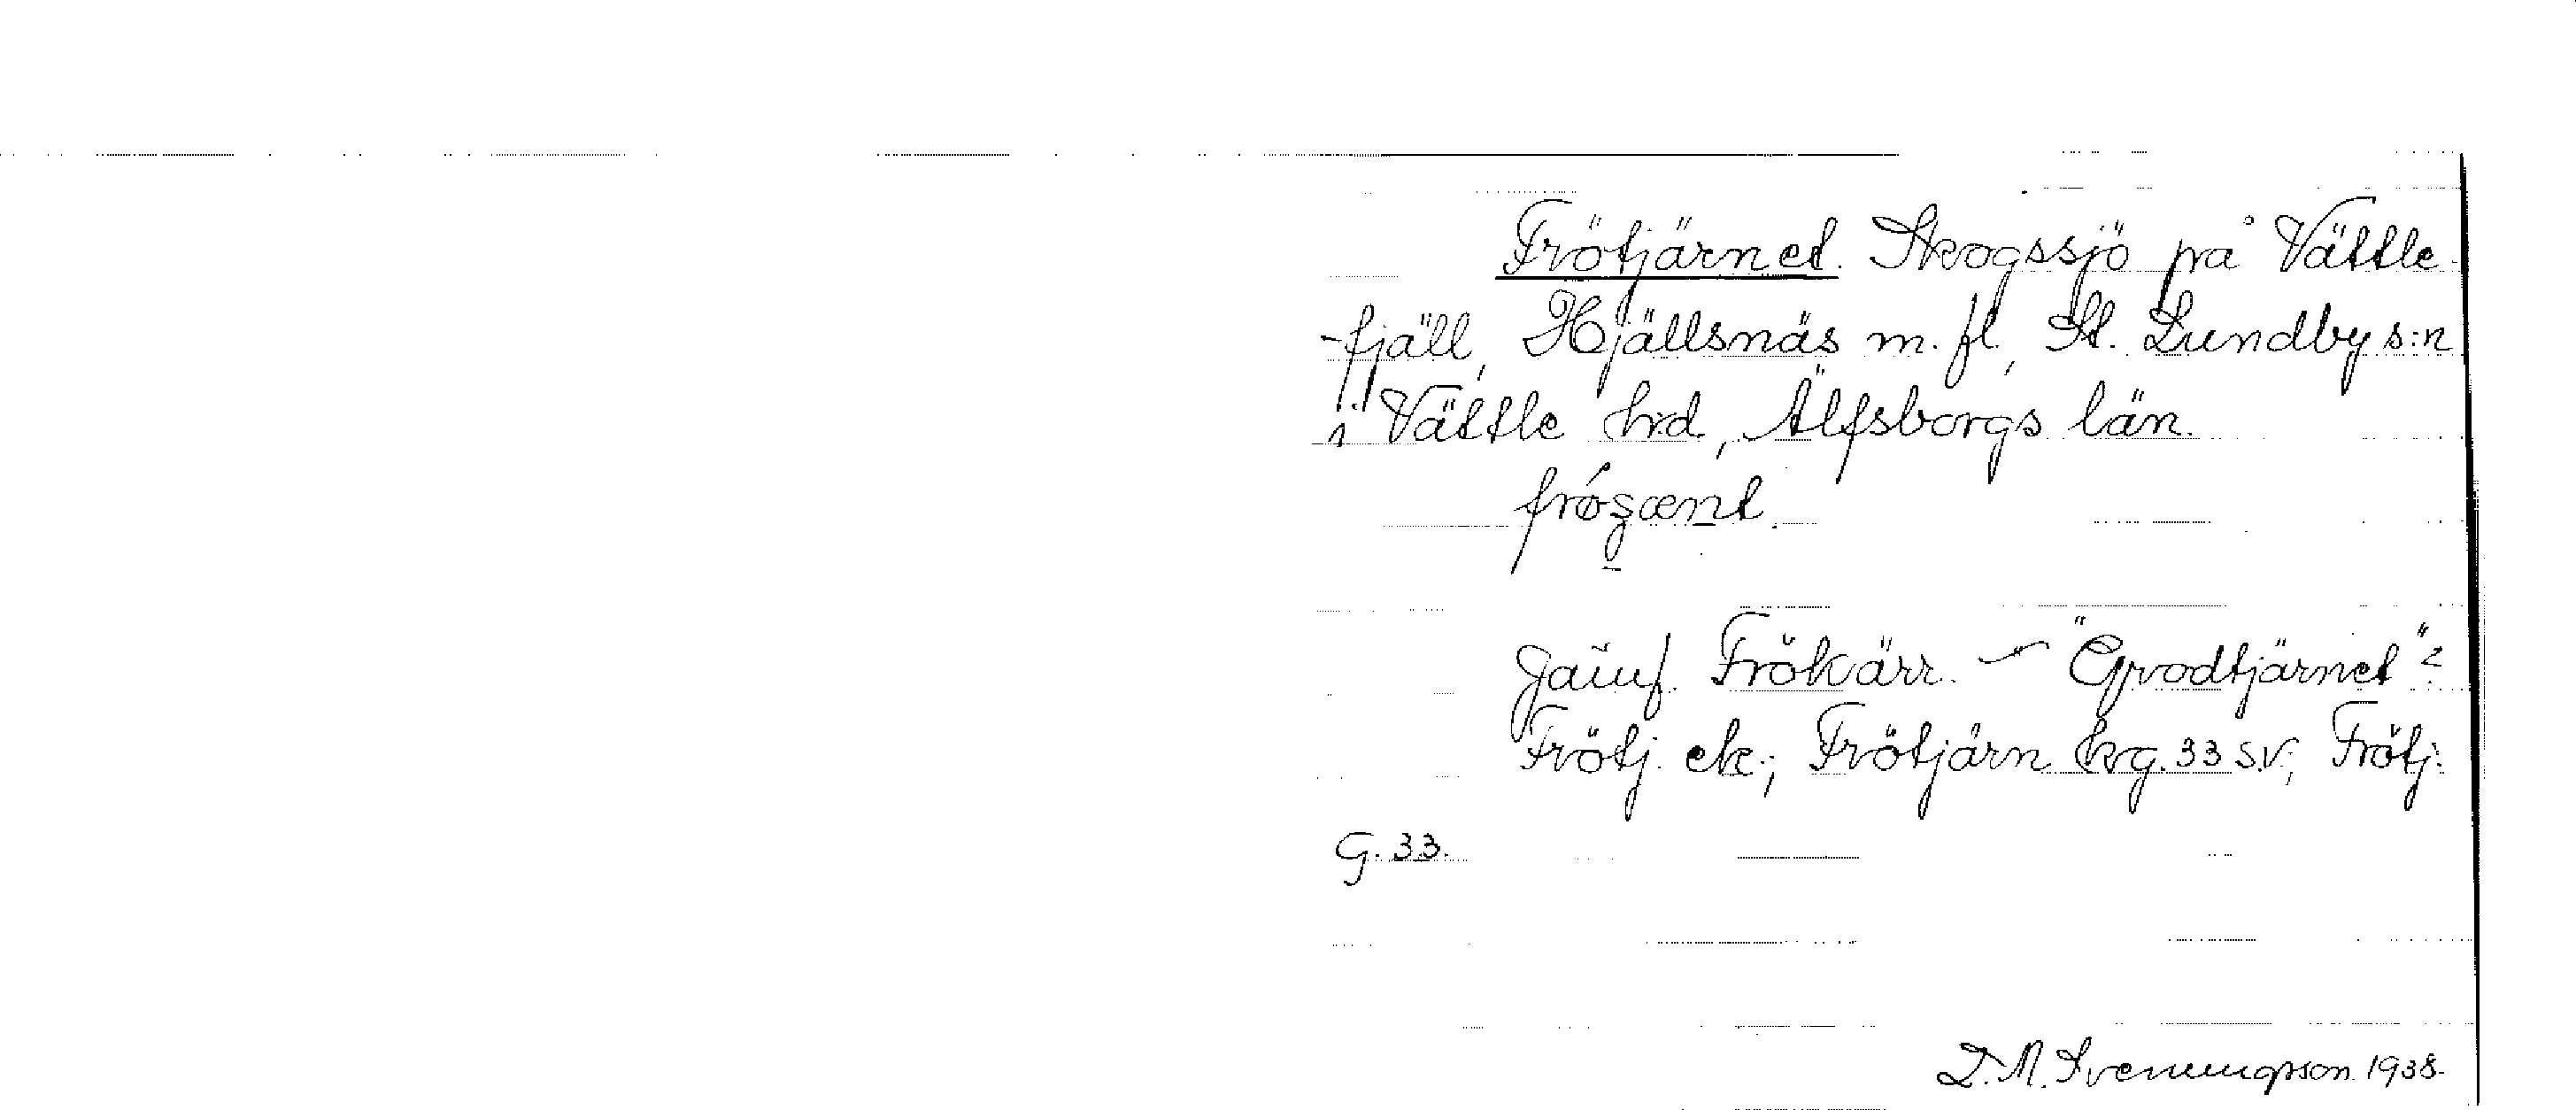 Frötjärnet. Skogssjö på Vättle-
-fjäll, Hjällsnäs m. fl., St. Lundby s:n
i Vättle hrd, Älfsborgs län.
Jämf. Frökärr. — "Grodtjärnet"?
Frötj. ek.; Frötjärn kg. 33 s.v.; Frötj.
G. 33.
D. N. Svenningson. 1938.